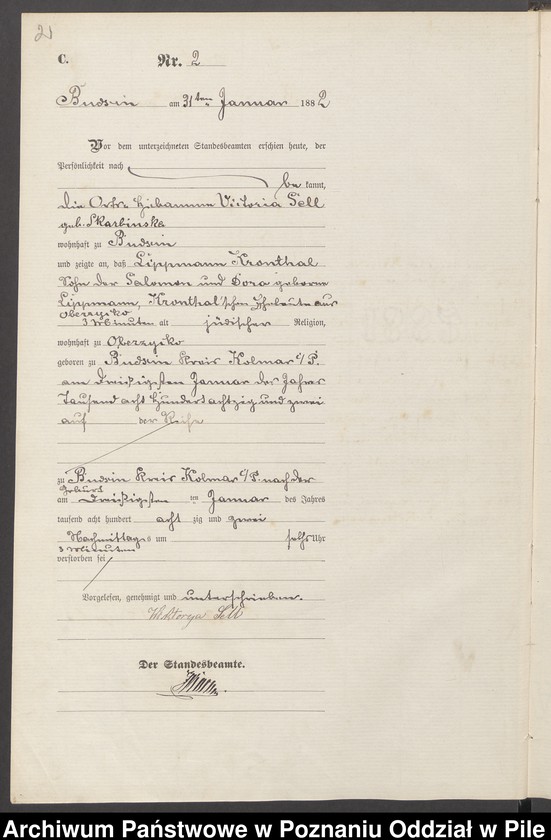 2
C. Nr. 2
Budsin am 31ten Januar 1882
Vor dem unterzeichneten Standesbeamten erschien heute, der
Persönlichkeit nach
be kannt,
die Orts Hebamme Victoria Sell
geb. Skarbinska
wohnhaft zu Budsin
und zeigte an, daß Lippmann Kronthal
Sohn der Salomon und Dora geborene
Lippmann, Kronthal'schen Eheleute aus
Obersitzko
3 Minuten alt jüdischer Religion,
wohnhaft zu Obersitzko
geboren zu Budsin Kreis Kolmar i/P.
am dreißigsten Januar des Jahres
tausend acht hundert achtzig und zwei
auf der Reise
zu Budsin Kreis Kolmar i/P. nach der
Geburt
am dreißigsten ten Januar des Jahres
tausend acht hundert acht zig und zwei
Nachmittags um sechs Uhr
3 Minuten
verstorben sei
Vorgelesen, genehmigt und unterschrieben.
Wiktorya Sell
Der Standesbeamte.
Archiwum Państwowe w Poznaniu Oddział w Pile